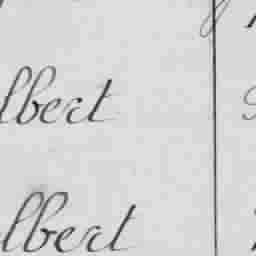 lbert
lbert